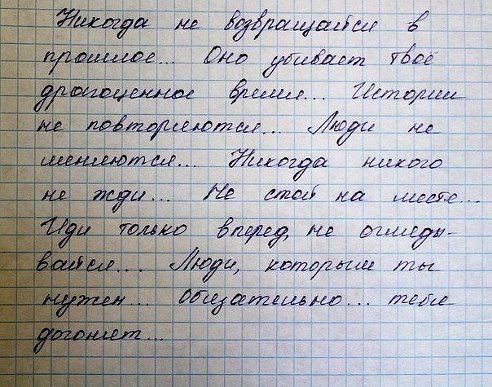 Никогда не возвращайся в
прошлое... Оно убивает твоё
драгоценное время... Истории
не повторяются... Люди не
меняются... Никогда никого
не жди... Не стой на месте...
Иди только вперед, не огляды-
вайся... Люди, которым ты
нужен... обязательно... тебя
догонят...